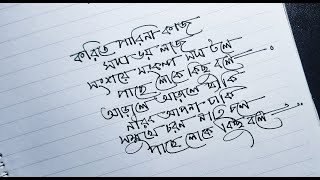 করিতে পারিনা কাজ
সদা ভয় লাজ
সংশয়ে সংকল্প সদা টলে
পাছে লোকে কিছু বলে
আড়ালে আড়ালে থাকি
নীরবে আপনা ঢাকি
সম্মুখে চরণ নাহি চলে
পাছে লোকে কিছু বলে